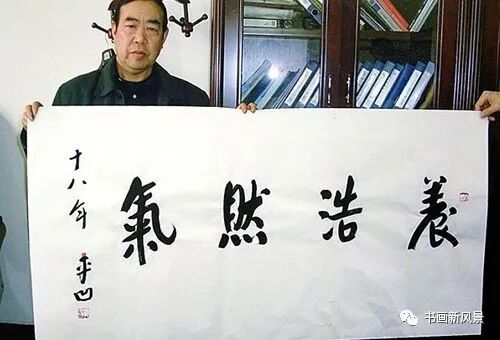 養浩然氣
十八年
平凹
书画新风景